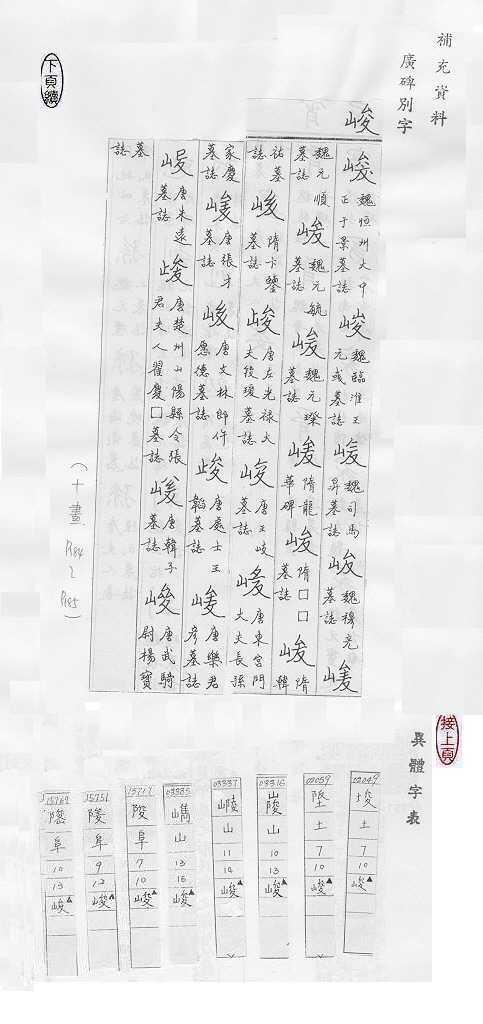 補充資料
廣碑別字
下頁續
峻
峻 魏恒州大中正于景墓誌 峻 魏臨淮王元彧墓誌 峻 魏司馬昇墓誌 峻 魏穆亮墓誌 峻
魏元順墓誌 峻 魏元毓墓誌 峻 魏元璨墓誌 峻 隋龍華碑 峻 隋□□墓誌 峻 隋韓
祐墓誌 峻 隋卞鑒墓誌 峻 唐左光祿大夫段瑗墓誌 峻 唐王岐墓誌 峻 唐東宮門大夫長孫
家慶墓誌 峻 唐張才墓誌 峻 唐文林郎仵愿德墓誌 峻 唐處士王韜墓誌 峻 唐樂君彥墓誌
峻 唐朱遠墓誌 峻 唐楚州山陽縣令張君夫人翟慶□墓誌 峻 唐韓子墓誌 峻 唐武騎尉楊寶
墓誌
(十畫 P184~P185)
接上頁
異體字表
02049 土 7 10 峻▲
02059 土 7 10 峻▲
03316 山 10 13 峻▲
03337 山 11 14 峻▲
03385 山 13 16 峻▲
15717 陖 阜 7 10 峻▲
15751 阜 9 12 峻▲
15769 阜 10 13 峻▲